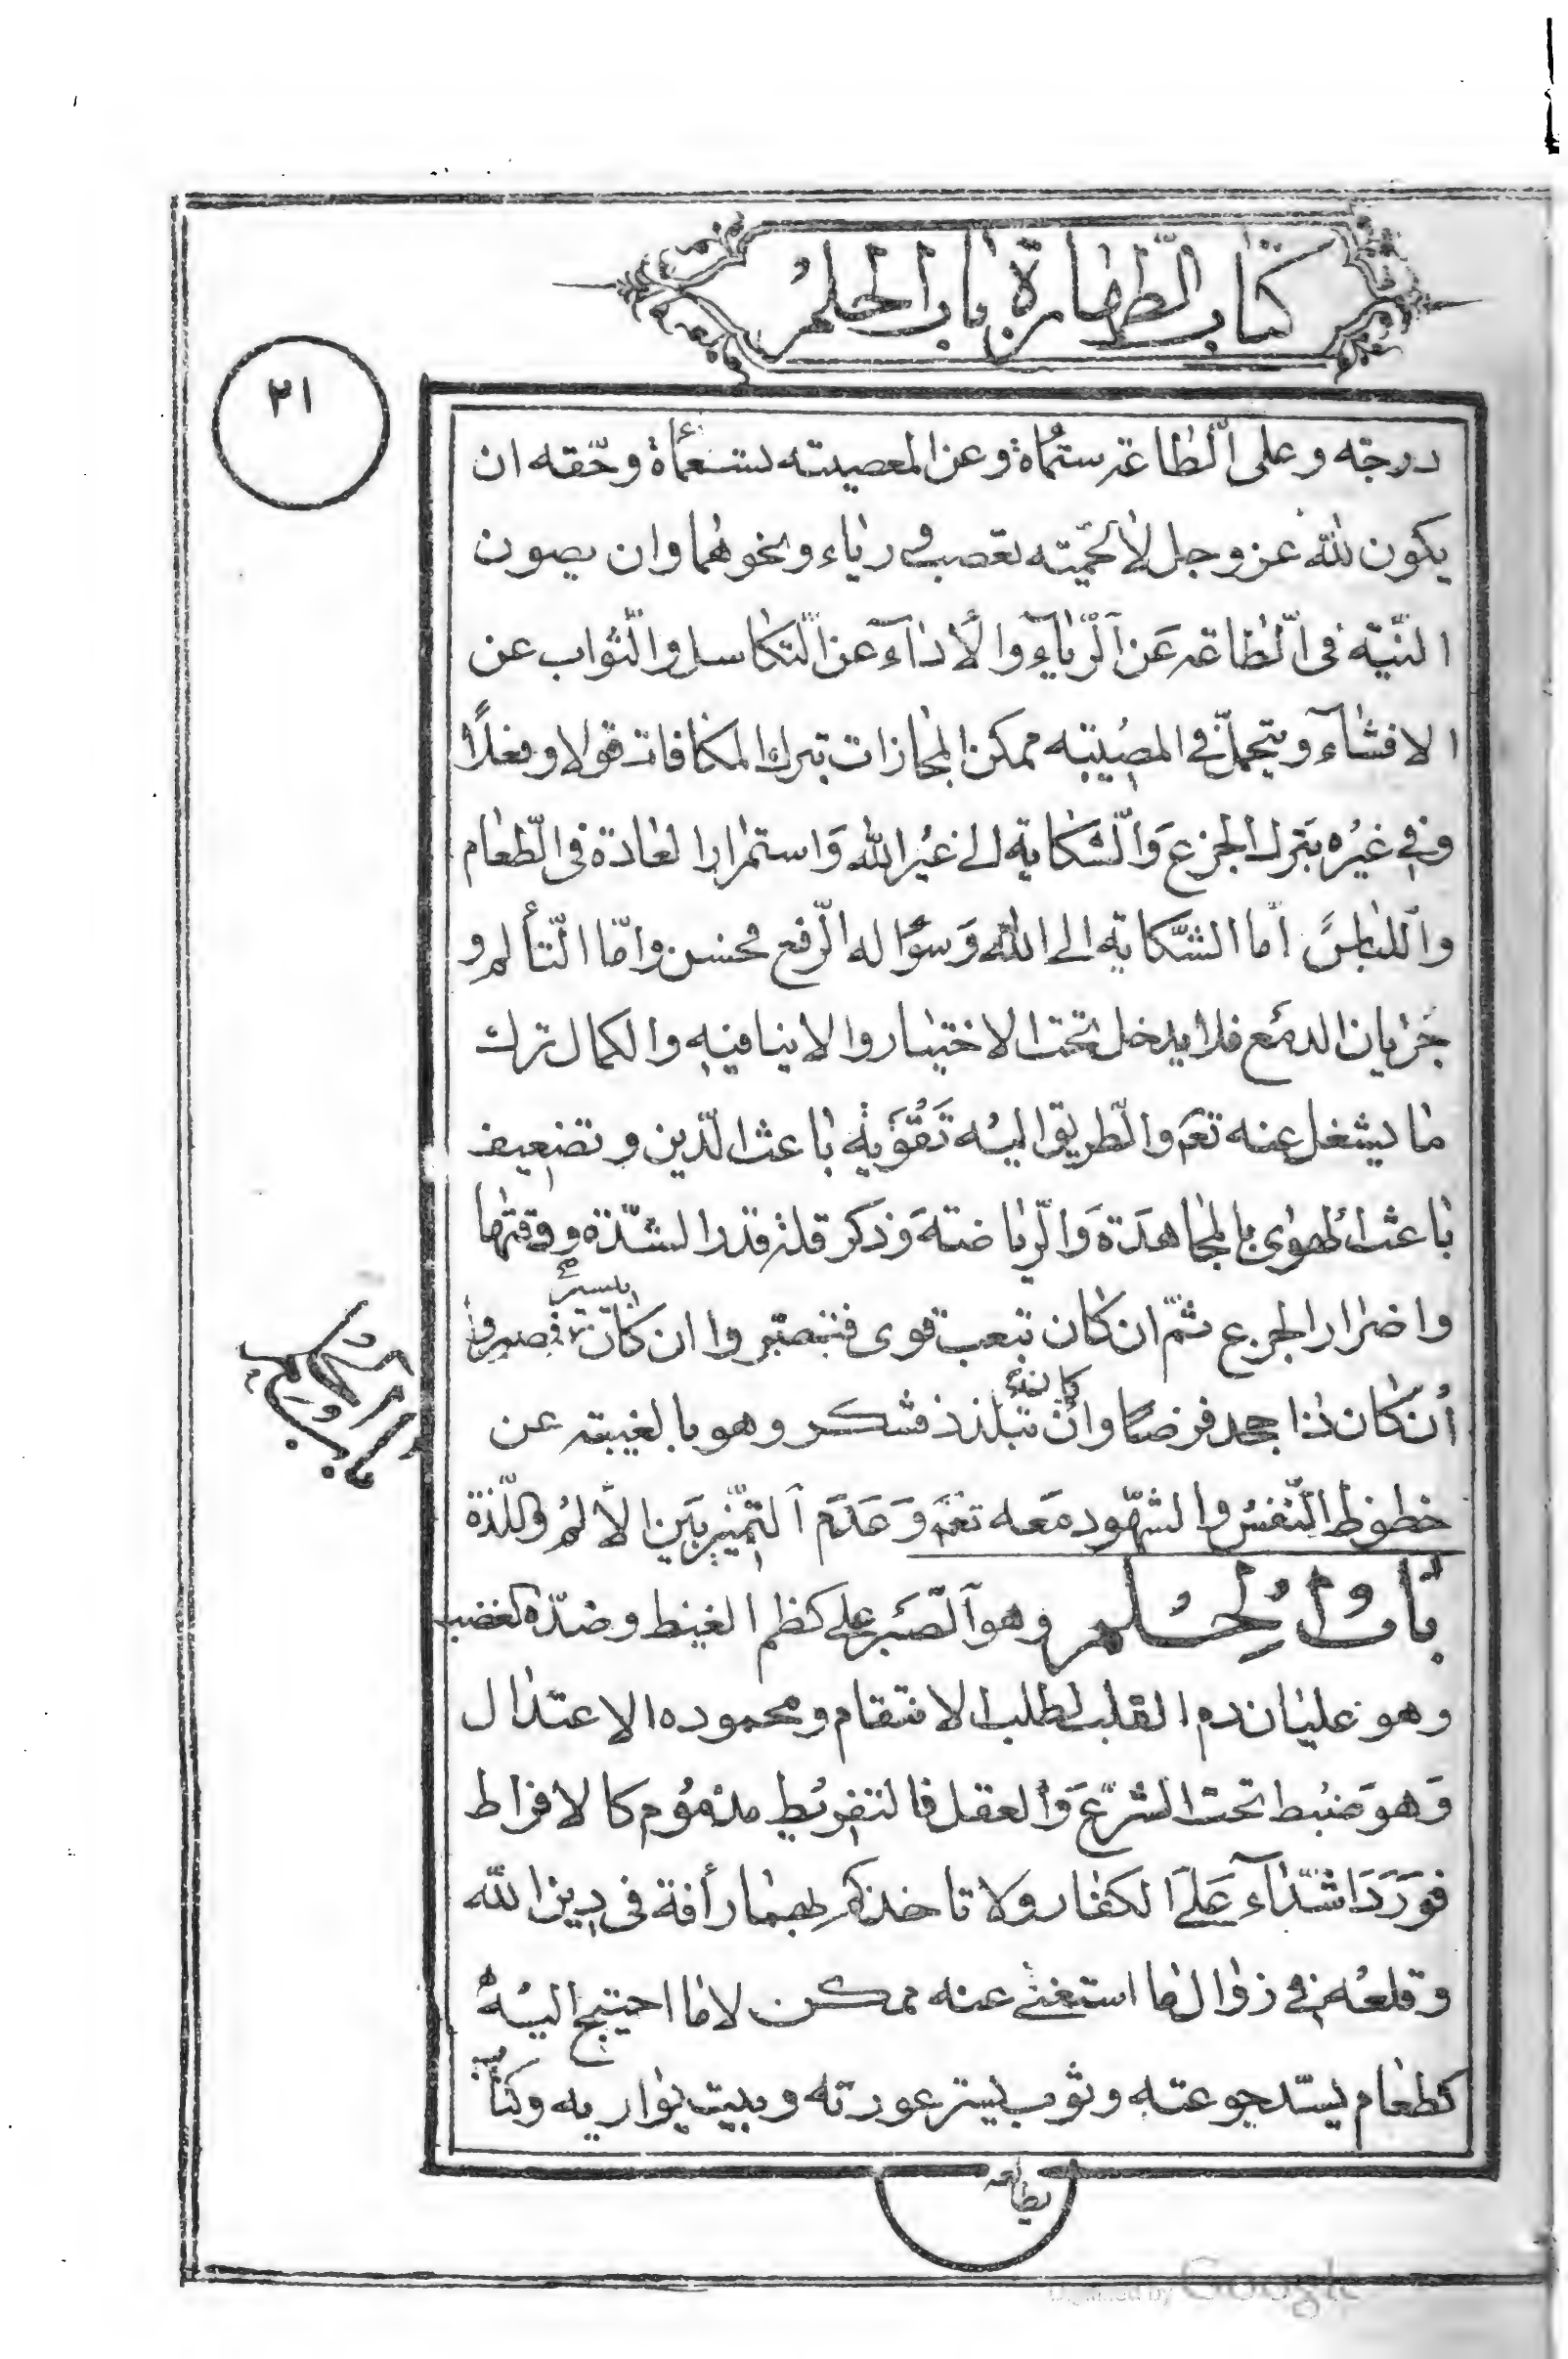 كتاب الطهارة باب الحلم
٢١
درجته وعلى الطاعة ستمأة وعن المعصيته تسعمأة وحقه ان
يكون لله عز وجل لا لحميته تعصب و رياء ونحوهما وان يصون
النيّة فى الطاعة عَن الرّيآءِ والأدآء عن التكاسل والثواب عن
الافشآء ويتجمل في المصيبته ممكن المجازات بترك المكافات قولا وفعلاً
وفي غيره بترك الجزع وَالشكاية الى غير الله وَاستمرار العادة فى الطعام
واللباس امّا الشكاية الى الله وَسؤاله الرّفع فحسن وامّا التألم و
جَريان الدمع فلا يدخل تحت الاختيار ولا ينافيه والكمال ترك
ما يشغل عنه تعم والطريق اليه تَقْوَية باعث الدّين وتضعيف
باعث الهوى بالمجاهدَة وَالرّياضتة وَذكر قلة قدر الشدّة ووقتها
واضرار الجزع ثمّ ان كان بتعب قوى فتصبّر وان كان بيسير فصبر و
أن كان ذا جحد فرضا وان كان بتلذذ فشكر وهو بالغيبته عن
حظوظ النّفس والشهود مَعه تعَم وَعَدَم التميّز بَين الألم واللّذة
باب الحلم وهو الصّبر على كظم الغيظ وضدّه الغضب
وهو غليان دم القلب لطلب الانتقام ومحموده الاعتدال
وَهوَ ضبط تحت الشرّع وَالعقل فالتفريط مذموم كالافراط
فوَرَدَ اشدّآء عَلىَ الكفار ولا تاخذكم بهما رأفة فى دين الله
وقلعه في زوال ما استغنى عنه ممكن لا ما احتيج اليه
كطعام يسدّ جوعته وثوب يستر عورته وبيت يواريه وكتاب
يطالعه
باب الحلم